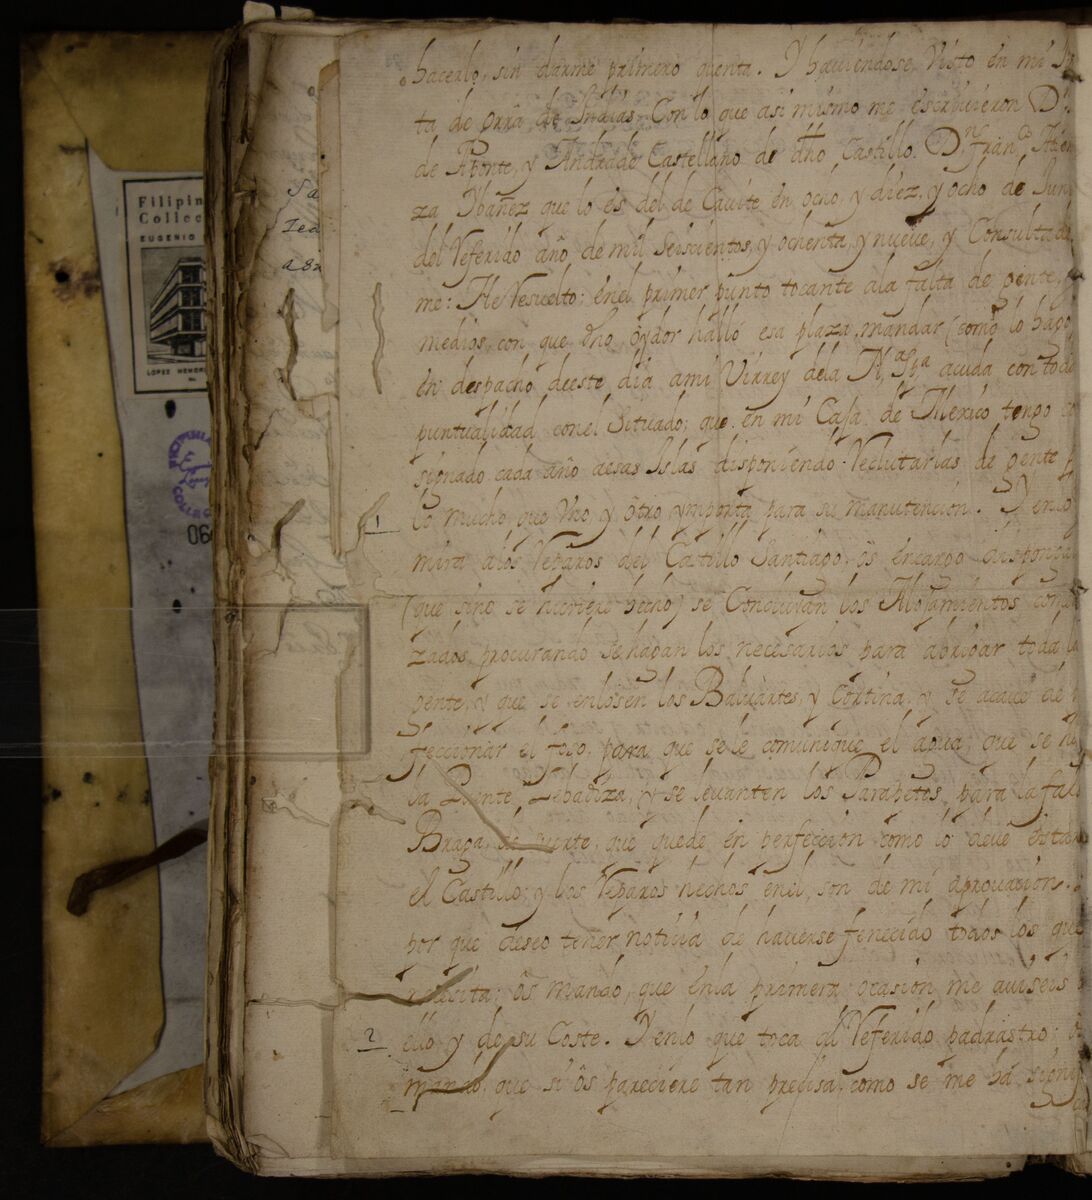 hacerlo, sin darme primero quenta. Y haviendose Visto en mi Jun
ta de Grrã de Indias, Con lo que asi mismo me escrivieron D.
de Aponte, y Andrade Castellano de dho Castillo. Dn. Franco.
za Ybañez que lo es del de Cavite en ocho, y diez, y ocho de Jun
del Referido año de mil Seiscientos, y ochenta, y nueve, y Consulta
me: He Resuelto: en el primer punto tocante ala falta de gente, y
medios, con que dho oydor halló esa plaza, mandar (como lo hago
en despacho deeste dia ami Virrey dela Na. Spa. acuda con toda
puntualidad conel Situado; que en mi Caja de Mexico tengo con
signado cada año aesas Islas disponiendo Reclutarlas de gente p
lo mucho, que Uno y otro ymporta para su manutencion. Yenlo
1
mira alos Reparos del Castillo Santiago, os encargo dispongais
(que sino se huviere hecho) se Concluyan los Alojamientos comen
zados, procurando sehagan los necesarios para abrigar toda la
gente, y que se enlosen los Baluartes, y Cortina, y se acave de per
feccionar el foso, para que sele comunique el agua, que se ha
la Puente Lebadiza, y se levanten los Parapetos, para la fal
Braga, de suerte, que quede en perfeccion como lo deve estar
el Castillo; y los Reparos hechos enel, son de mi aprovacion.
por que deseo tener noticia de haverse fenecido todos los que
necesita; os mando, que enla primera ocasion me aviseis
2
ello y de su Coste. Yenlo que toca al Referido padrastro;
mando, que si os pareciere tan precisa, como se me há signi
Filipin
Collec
EUGENIO
LOPEZ MEMOR
No.
06